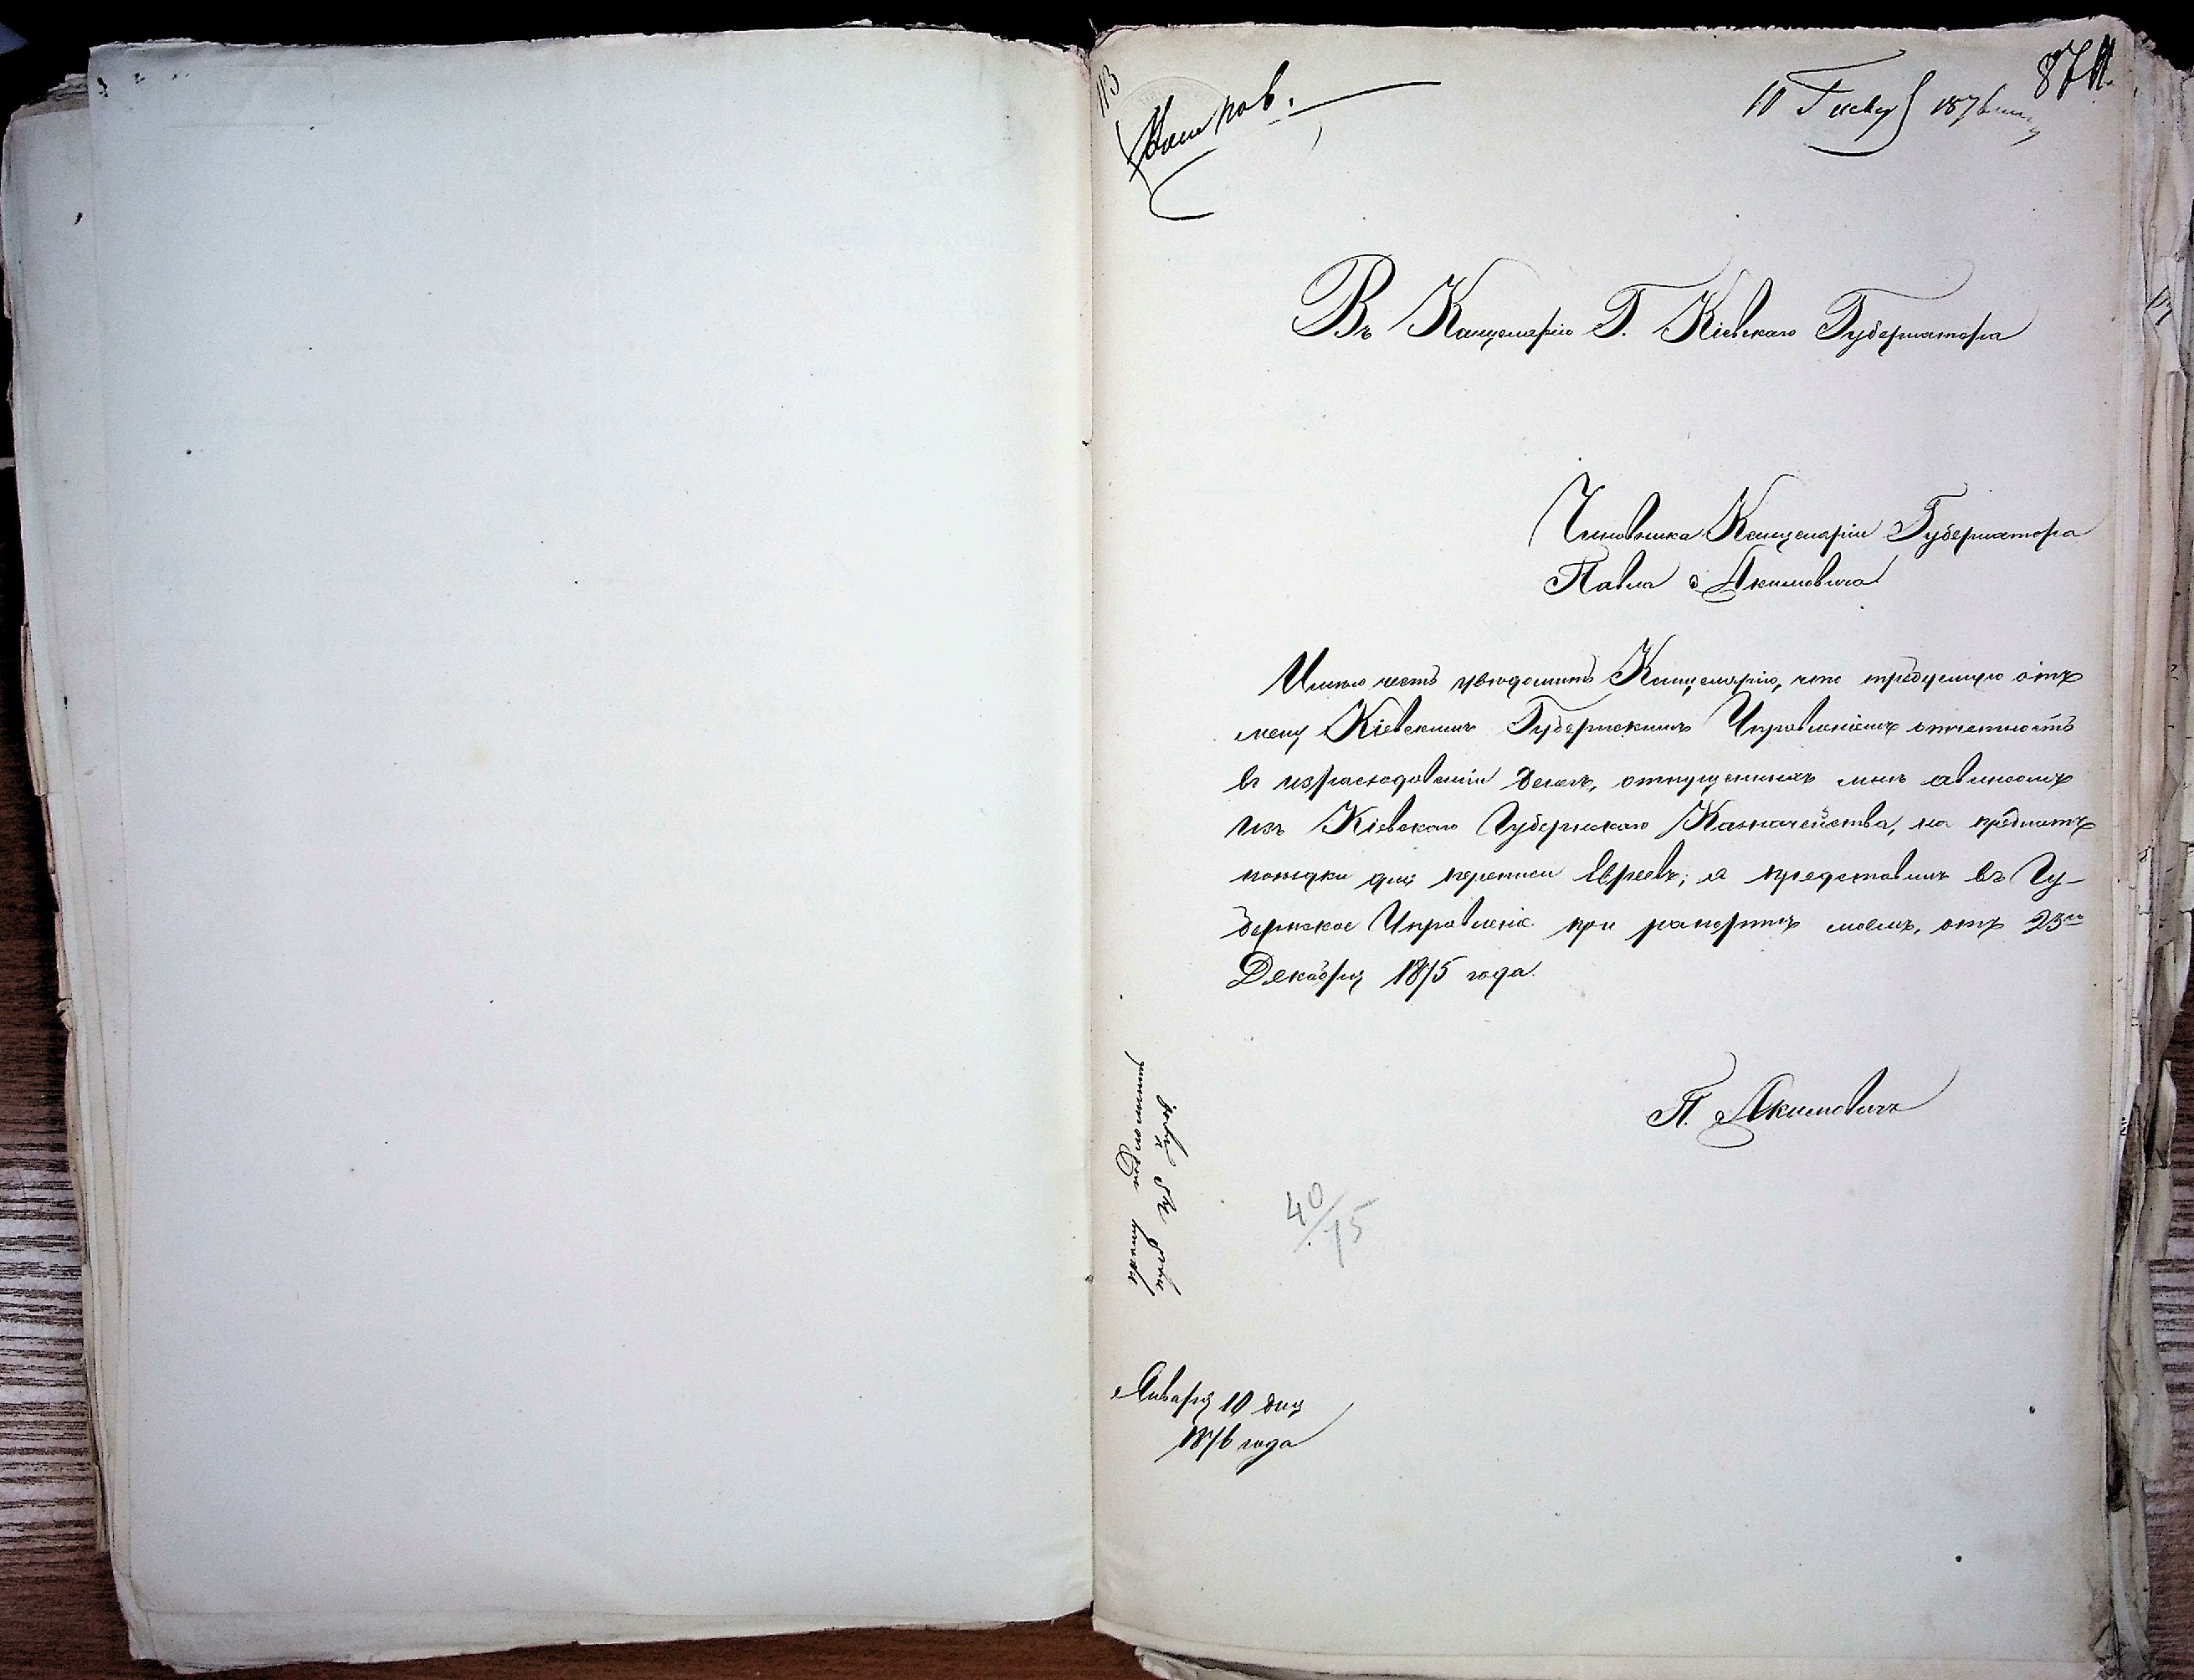 113
10 Генв 1876
87
Въ Канцелярію Г. Кіевскаго Губернатора
Чиновника Канцеляріи Губернатора
Павла Акимовича
Имѣю честь увѣдомить Канцелярію, что требуемую отъ
меня Кіевскимъ Губернскимъ Управленіемъ отчетность
въ израсходованіи денегъ, отпущенныхъ мнѣ авансомъ
изъ Кіевскаго Губернскаго Казначейства, на предметъ
поѣздки для переписи Евреевъ, я представилъ въ Гу-
бернское Управленіе при рапортѣ моемъ, отъ 23го
Декабря 1875 года.
П. Акимовичъ
40/75
Января 10 дня
1876 года